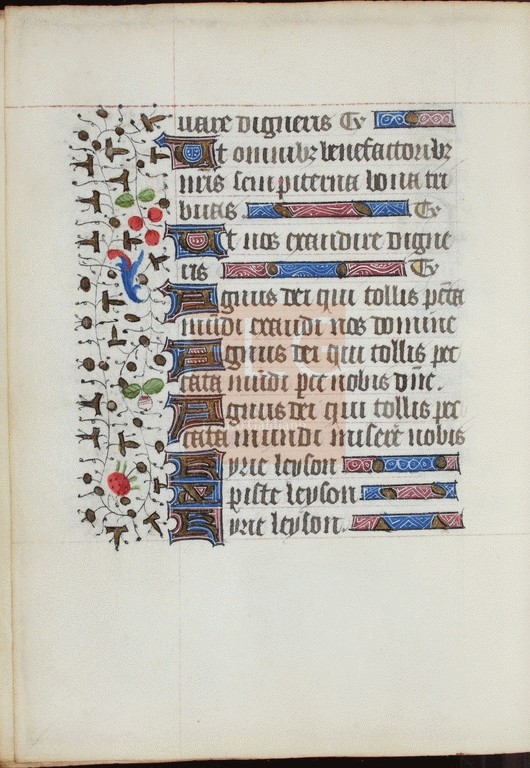 uare digneris Te
Ut omnibz benefactoribz
nris sempiterna bona tri
buas Te
Ut nos exaudire digne
ris Te
Agnus dei qui tollis pcta
mudi exaudi nos domine
Agnus dei qui tollis pec
cata mudi pce nobis dne.
Agnus dei qui tollis pec
cata mundi misere nobis
Kyrie leyson
Xpiste leyson
Kyrie leyson.